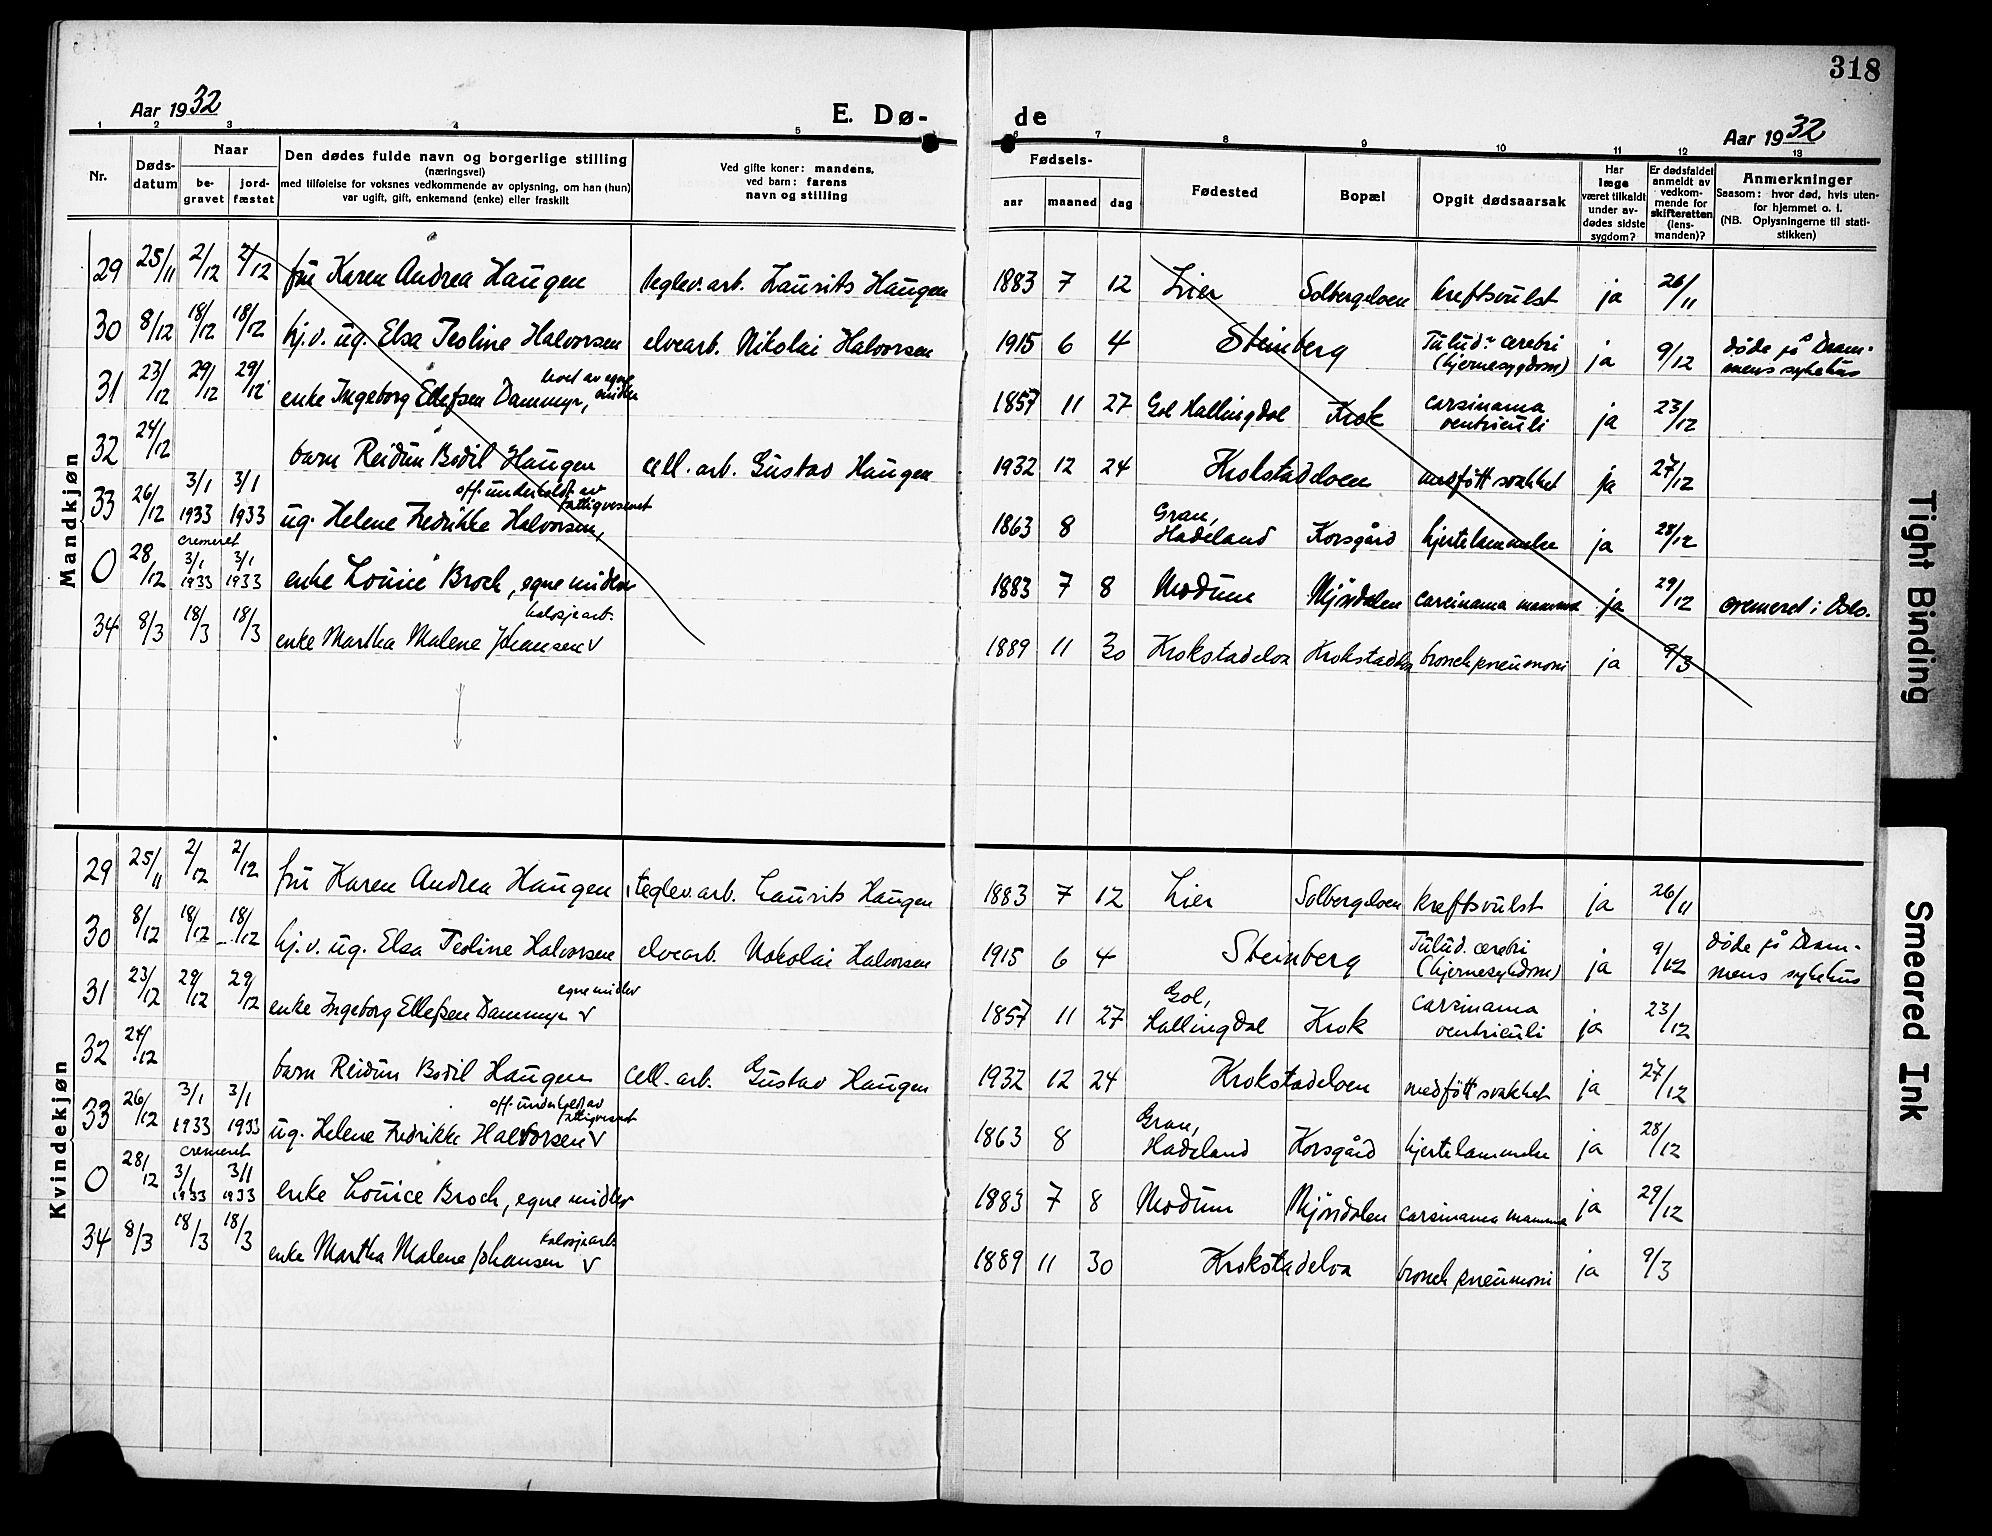 318
Aar 1932
E. Dø-
de
Aar 1932
1 2 3 4 5 6 7 8 9 10 11 12 13
Nr.
Døds-
datum
Naar
be-
gravet
jord-
fæstet
Den dødes fulde navn og borgerlige stilling
(næringsvei)
med tilføielse for voksnes vedkommende av oplysning, om han (hun)
var ugift, gift, enkemand (enke) eller fraskilt
Ved gifte koner: mandens,
ved barn: farens
navn og stilling
Fødsels-
aar maaned dag
Fødested
Bopæl
Opgit dødsaarsak
Har
læge
været tilkaldt
under av-
dødes sidste
sygdom?
Er dødsfaldet
anmeldt av
vedkom-
mende for
skifteretten
(lens-
manden)?
Anmerkninger
Saasom: hvor død, hvis uten-
for hjemmet o. l.
(NB. Oplysningerne til stati-
stikken)
Mandkjøn
29 25/11 2/12 2/12 fru Karen Andrea Haugen teglev. arb. Laurits Haugen 1883 7 12 Lier Solbergelven kreftsvulst ja 26/11
30 8/12 18/12 18/12 hj.v. ug. Elsa Teoline Halvorsen elvearb. Nikolai Halvorsen 1915 6 4 Steinberg cerebri (hjernesygdom) ja 9/12 døde på Dram-
mens sykehus
31 23/12 29/12 29/12 enke Ingeborg Ellefsen Dammyr, levet av egne midler 1857 11 27 Gol Hallingdal Krok carsinama ventriculi ja 23/12
32 24/12 barn Reidun Bodil Haugen cell. arb. Gustav Haugen 1932 12 24 Krokstadelven medfött svakhet ja 27/12
33 26/12 3/1 1933 3/1 1933 ug. Helene Fredrikke Halvorsen, off. underholdt av fattigvesenet 1863 8 Gran, Hadeland Korsgård hjertelammelse ja 28/12
0 28/12 cremeret 3/1 1933 3/1 1933 enke Louise Broch, egne midler 1883 7 8 Modum Mjöndalen carcinama mamma ja 29/12 cremeret i Oslo.
34 8/3 18/3 18/3 enke Martha Malene Johansen v 1889 11 30 Krokstadelva Krokstadelva bronch pneumoni ja 9/3
Kvindekjøn
29 25/11 2/12 2/12 fru Karen Andrea Haugen teglev. arb. Laurits Haugen 1883 7 12 Lier Solbergelven kreftsvulst ja 26/11
30 8/12 18/12 18/12 hj.v. ug. Elsa Teoline Halvorsen elvearb. Nokolai Halvorsen 1915 6 4 Steinberg cerebri (hjernesykdom) ja 9/12 døde på Dram-
mens sykehus
31 23/12 29/12 29/12 enke Ingeborg Ellefsen Dammyr v egne midler 1857 11 27 Gol, Hallingdal Krok carsinama ventriculi ja 23/12
32 24/12 barn Reidun Bodil Haugen cell. arb. Gustav Haugen 1932 12 24 Krokstadelven medfött svakhet ja 27/12
33 26/12 3/1 1933 3/1 1933 ug. Helene Fredrikke Halvorsen v off. underholdt av fattigvesenet 1863 8 Gran, Hadeland Korsgård hjertelammelse ja 28/12
0 28/12 cremeret 3/1 1933 3/1 1933 enke Louise Broch, egne midler 1883 7 8 Modum Mjöndalen carsinama mamma ja 29/12
34 8/3 18/3 18/3 enke Martha Malene Johansen v 1889 11 30 Krokstadelva bronch pneumoni ja 9/3
Tight Binding
Smeared Ink